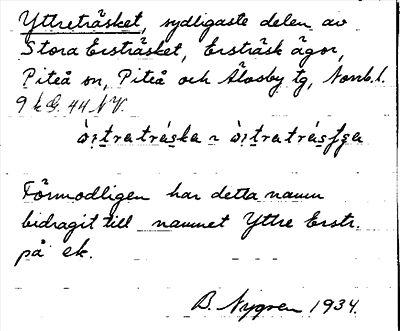 Yttreträsket, sydligaste delen av
Stora Ersträsket, Ersträsk ägor,
Piteå sn, Piteå och Älvsby tg, Norrb. l.
9 k G. 44 NV.
Förmodligen har detta namn
bidragit till namnet Yttre Erstr.
på ek.
B. Nygren 1934.